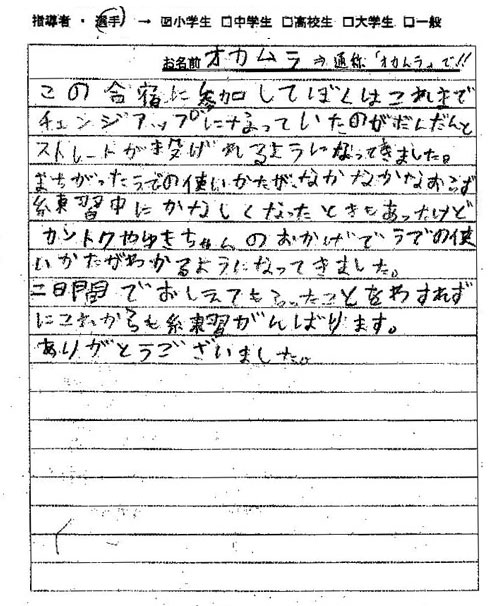 指導者・選手 → ☑小学生 □中学生 □高校生 □大学生 □一般
お名前 オカムラ ⇒ 通称「オカムラ」で!!
この合宿に参加してぼくはこれまで
チェンジアップになっていたのがだんだんと
ストレートが投げれるようになってきました。
まちがったうでの使いかたが、なかなかなおらず
練習中にかなしくなったときもあったけど
カントクやゆきちゃんのおかげでうでの使
いかたがわかるようになってきました。
二日間でおしえてもらったことをわすれず
にこれからも練習がんばります。
ありがとうございました。